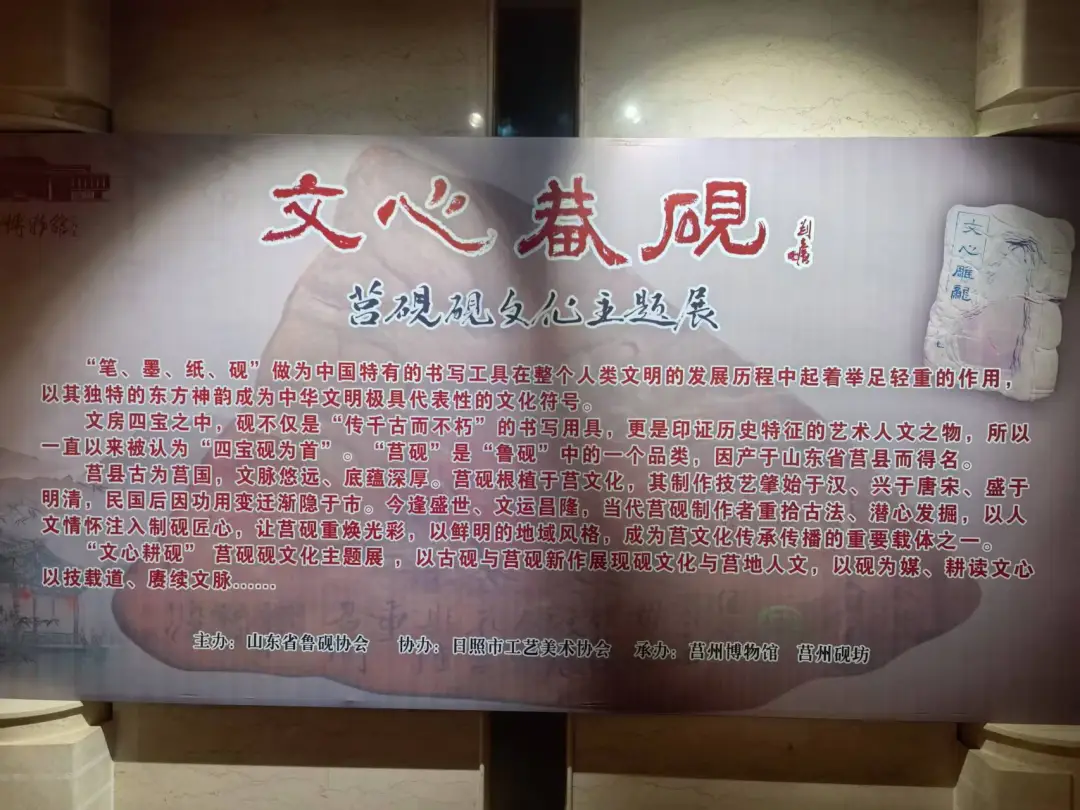 文心 硯
莒砚砚文化主题展
博物館
文心雕龍
“笔、墨、纸、砚”做为中国特有的书写工具在整个人类文明的发展历程中起着举足轻重的作用，
以其独特的东方神韵成为中华文明极具代表性的文化符号。
文房四宝之中，砚不仅是“传千古而不朽”的书写用具，更是印证历史特征的艺术人文之物，所以
一直以来被认为“四宝砚为首”。“莒砚”是“鲁砚”中的一个品类，因产于山东省莒县而得名。
莒县古为莒国，文脉悠远、底蕴深厚。莒砚根植于莒文化，其制作技艺肇始于汉、兴于唐宋、盛于
明清，民国后因功用变迁渐隐于市。今逢盛世、文运昌隆，当代莒砚制作者重拾古法、潜心发掘，以人
文情怀注入制砚匠心，让莒砚重焕光彩，以鲜明的地域风格，成为莒文化传承传播的重要载体之一。
“文心耕砚” 莒砚砚文化主题展 ，以古砚与莒砚新作展现砚文化与莒地人文，以砚为媒、耕读文心
以技载道、赓续文脉……
主办：山东省鲁砚协会 协办：日照市工艺美术协会 承办：莒州博物馆 莒州砚坊